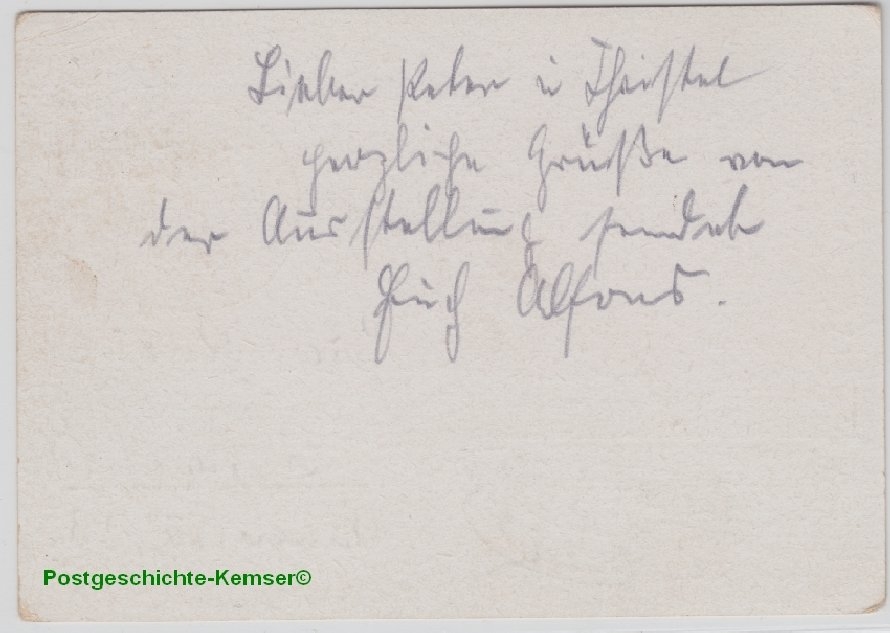 Lieber Peter u
herzliche Grüße von
der Ausstellung sendet
Euch Alfons.
Postgeschichte-Kemser©